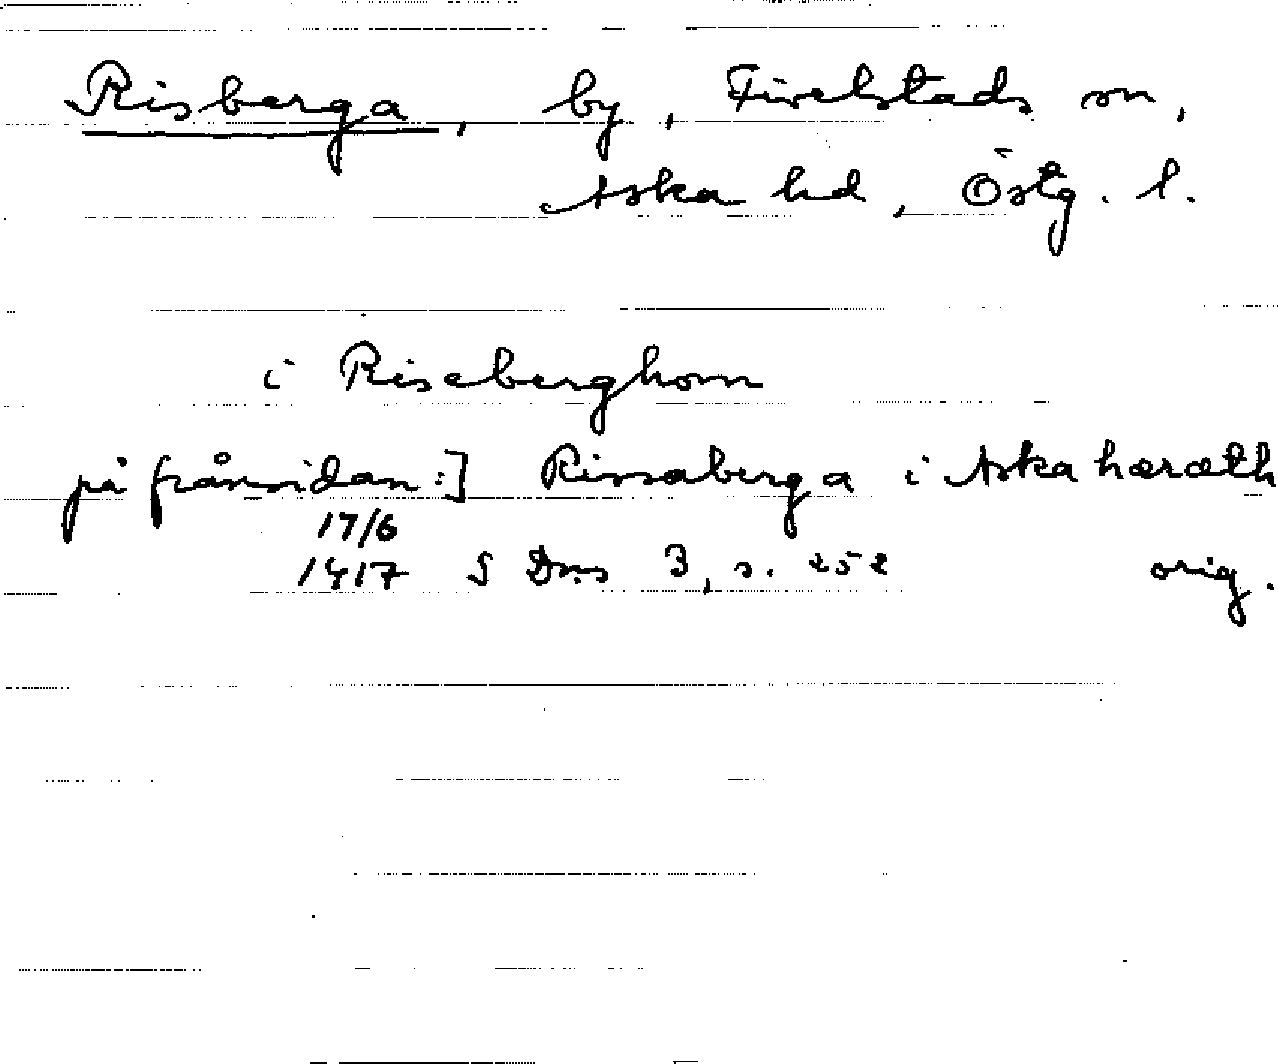 Risberga, by, Fivelstads sn,
Aska hd, Östg. l.
i Riseberghom
på frånsidan:] Rissaberga i Aska hæræth
17/6
1417 S Dns 3, s. 252 orig.